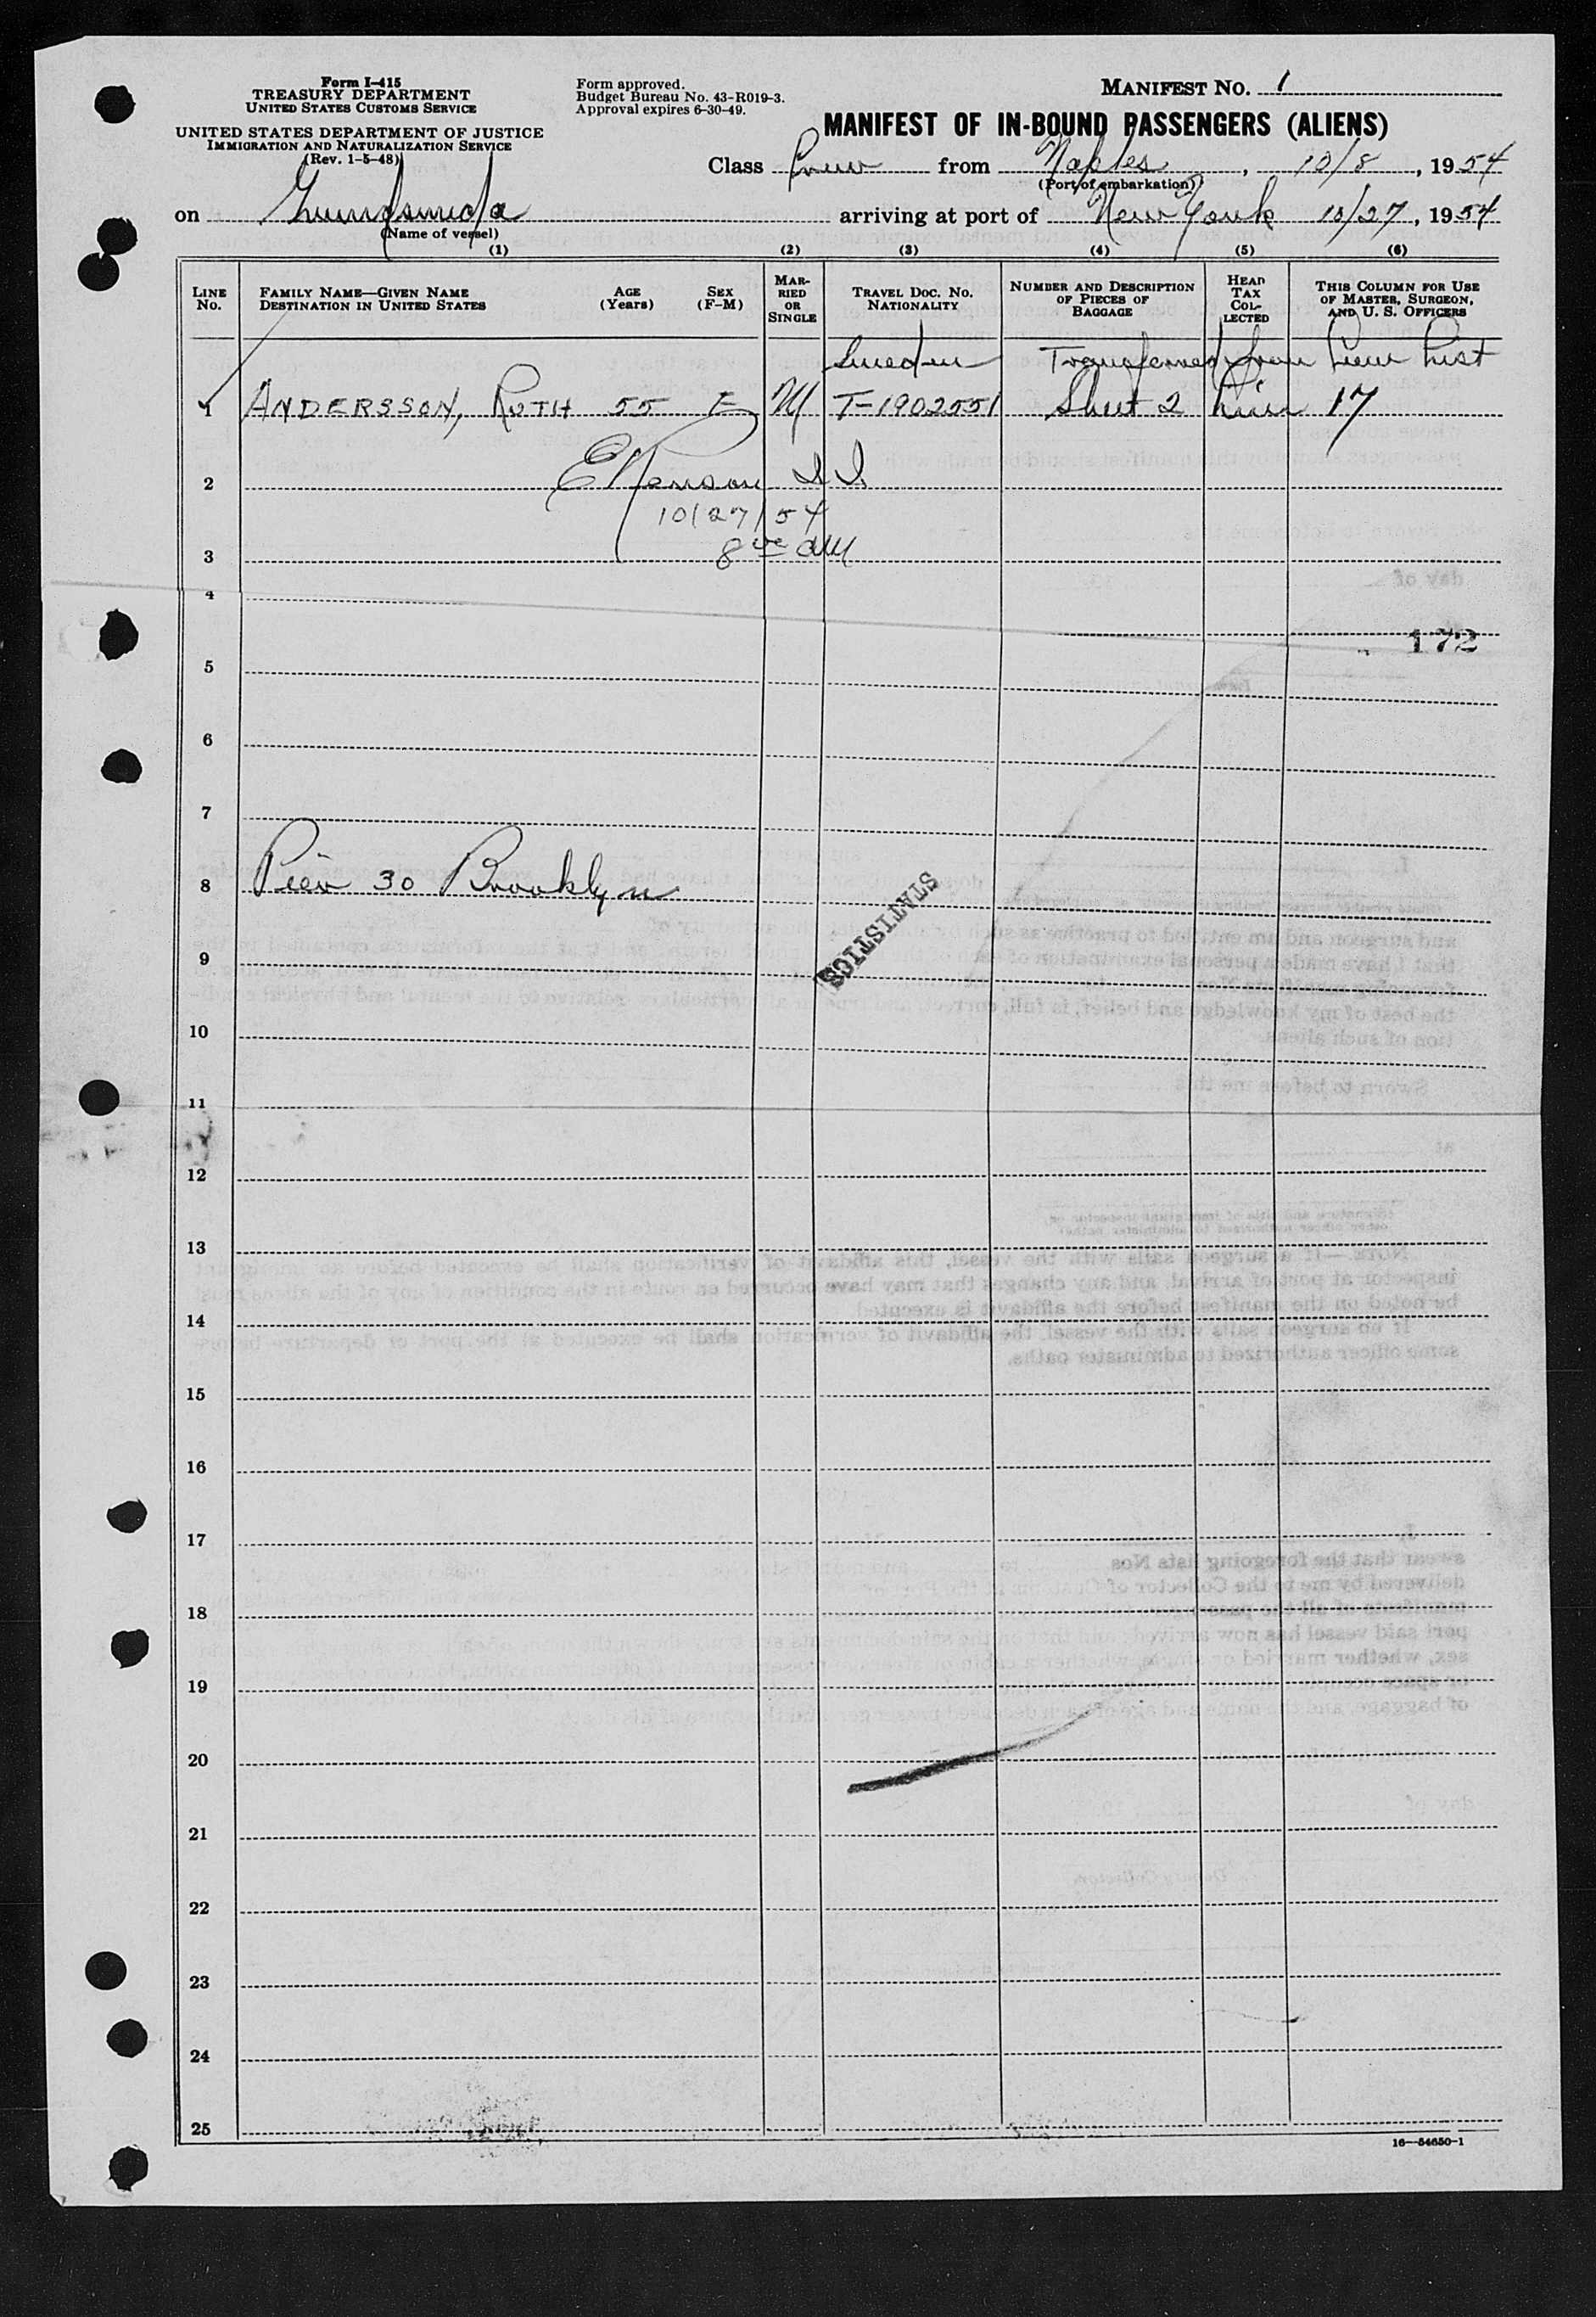 Form I-415
TREASURY DEPARTMENT
UNITED STATES CUSTOMS SERVICE
UNITED STATES DEPARTMENT OF JUSTICE
IMMIGRATION AND NATURALIZATION SERVICE
(Rev. 1-5-48)
Form approved.
Budget Bureau No. 43-R019-3.
Approval expires 6-30-49.
MANIFEST NO. 1
MANIFEST OF IN-BOUND PASSENGERS (ALIENS)
Class Crew from Naples, 10/8, 1954
(Port of embarkation)
on arriving at port of New York 10/27, 1954
(Name of vessel)
(1) (2) (3) (4) (5) (6)
LINE NO.
FAMILY NAME—GIVEN NAME
DESTINATION IN UNITED STATES
AGE (Years)
SEX (F-M)
MARRIED OR SINGLE
TRAVEL DOC. NO.
NATIONALITY
NUMBER AND DESCRIPTION OF PIECES OF BAGGAGE
HEAD TAX COLLECTED
THIS COLUMN FOR USE OF MASTER, SURGEON, AND U. S. OFFICERS
Sweden Transferred from Crew List
1 ANDERSSON, RUTH 55 F M T-1902551 Sheet 2 Line 17
2
10/27/54
3 8 AM
4
172
5
6
7
8 Pier 30 Brooklyn
STATISTICS
9
10
11
12
13
14
15
16
17
18
19
20
21
22
23
24
25
16—54650-1